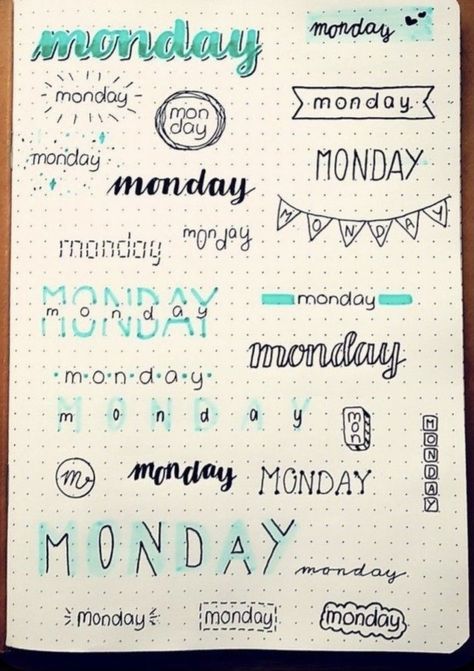 monday
monday
monday
mon
day
monday
monday
MONDAY
monday
MONDAY
monday
monday
MONDAY
monday
monday
monday
m•o•n•d•a•y
MONDAY
monday
mon
MONDAY
m
monday
MONDAY
MONDAY
monday
monday
monday
monday